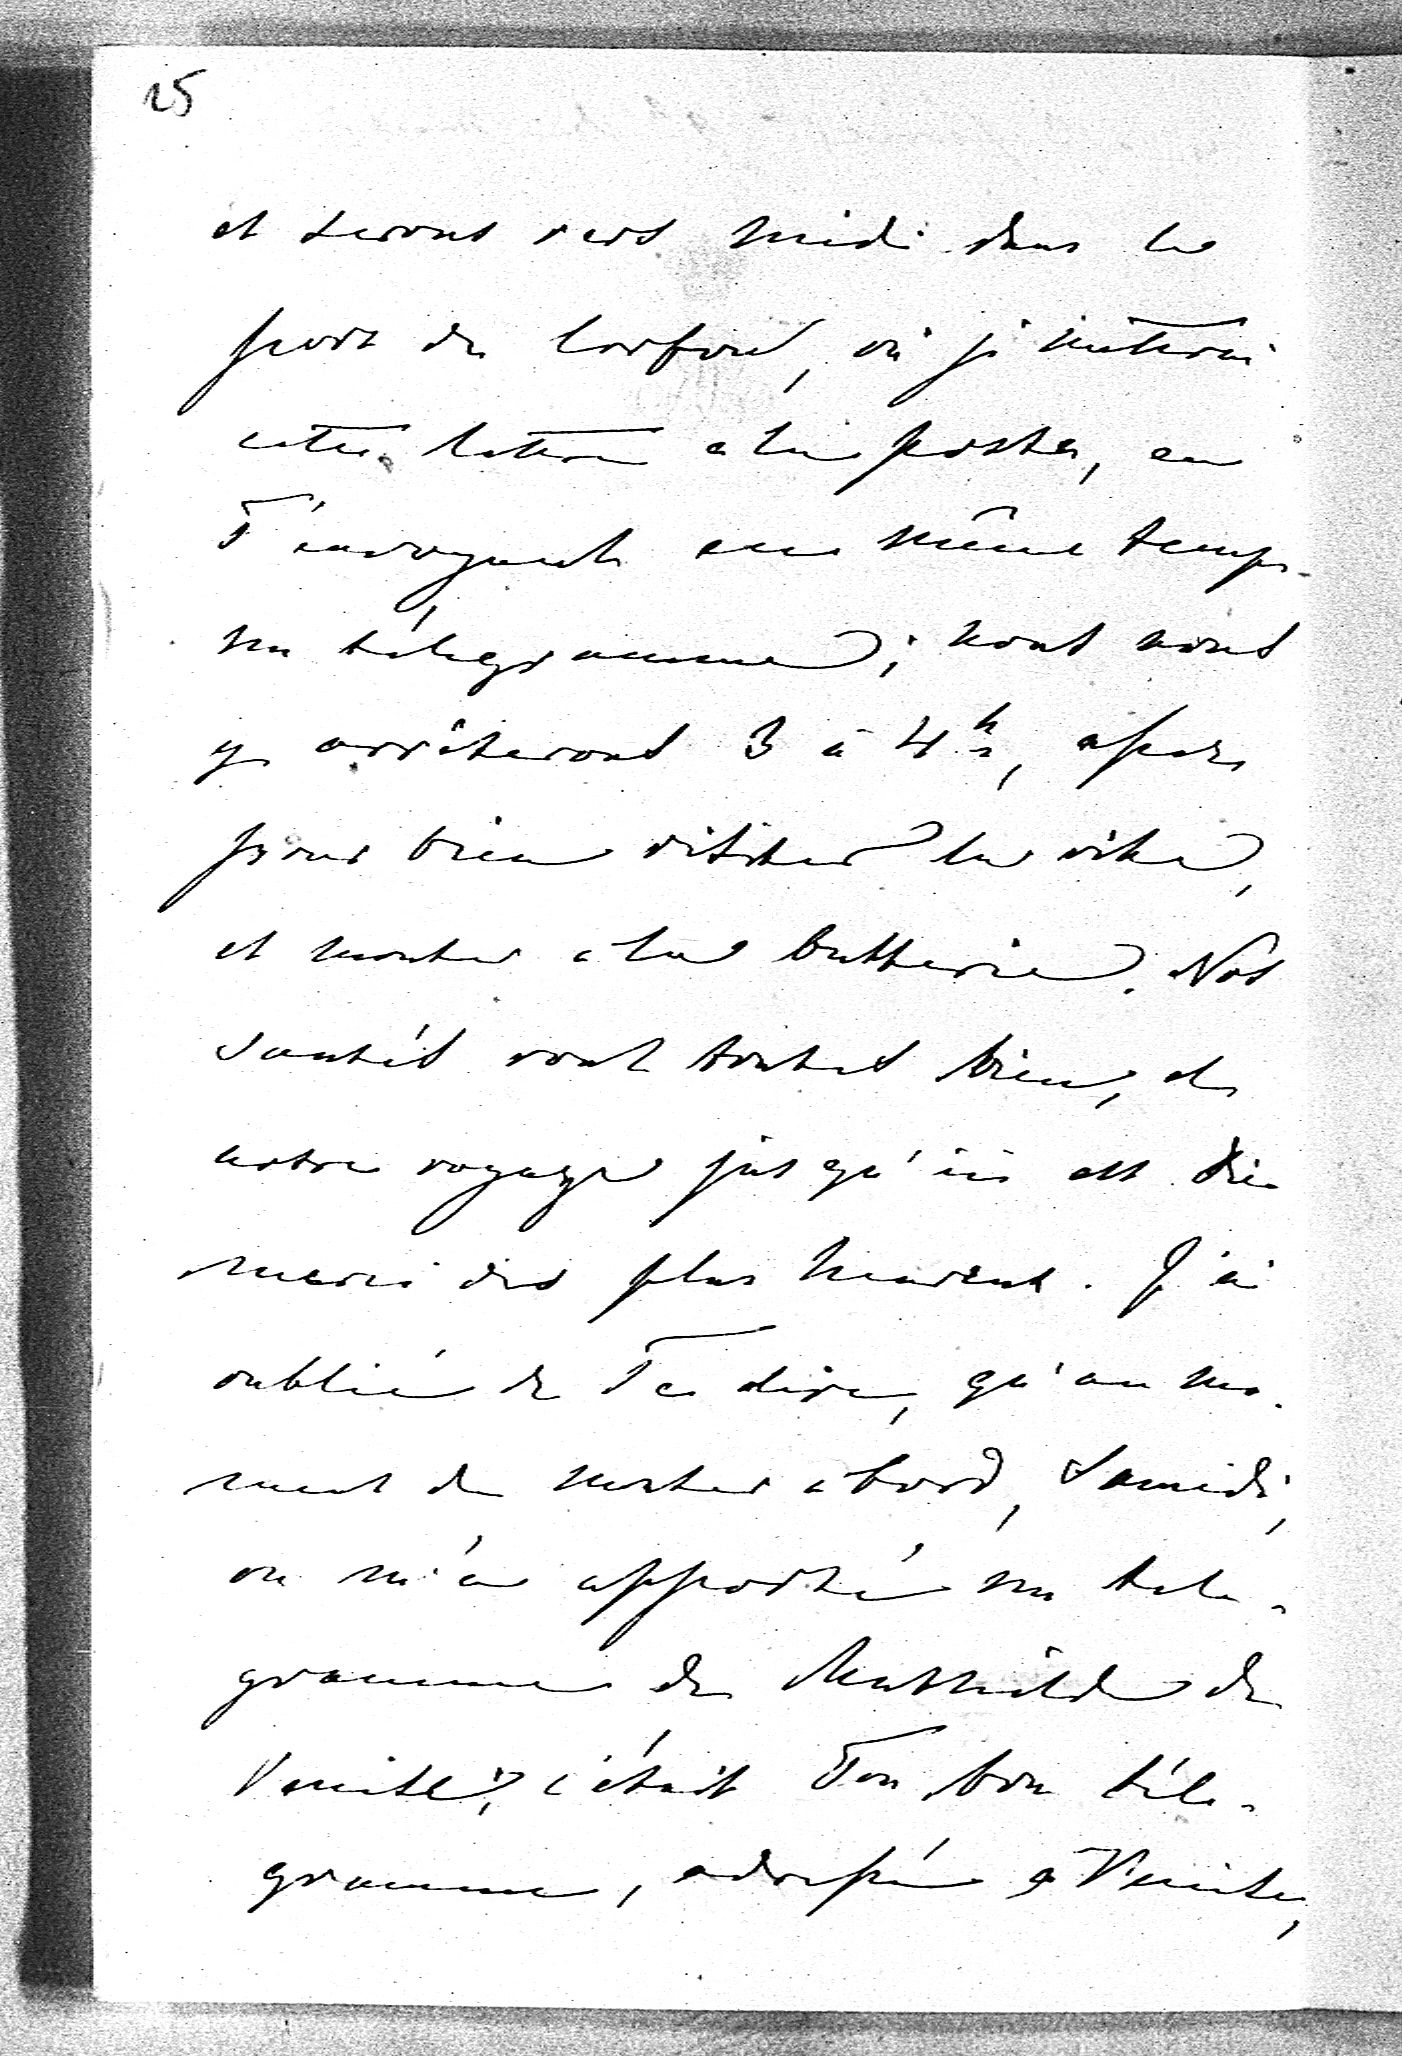 25
et serons vers midi dans le
port de Corfou, où je mettrai
cette lettre à la poste, en
T'envoyant en même temps
un télégramme; nous nous
y arrêterons 3 à 4 h, assez
pour bien visiter la ville,
et monter à la batterie. Nos
santés vont toutes bien, et
notre voyage jusqu'ici est Dieu
merci des plus heureux. J'ai
oublié de Te dire, qu'au mo-
ment de monter à bord, Samedi,
on m'a apporté un télé-
gramme de Mathilde de
Venise; c'était Ton bon télé-
gramme, adressé à Venise,